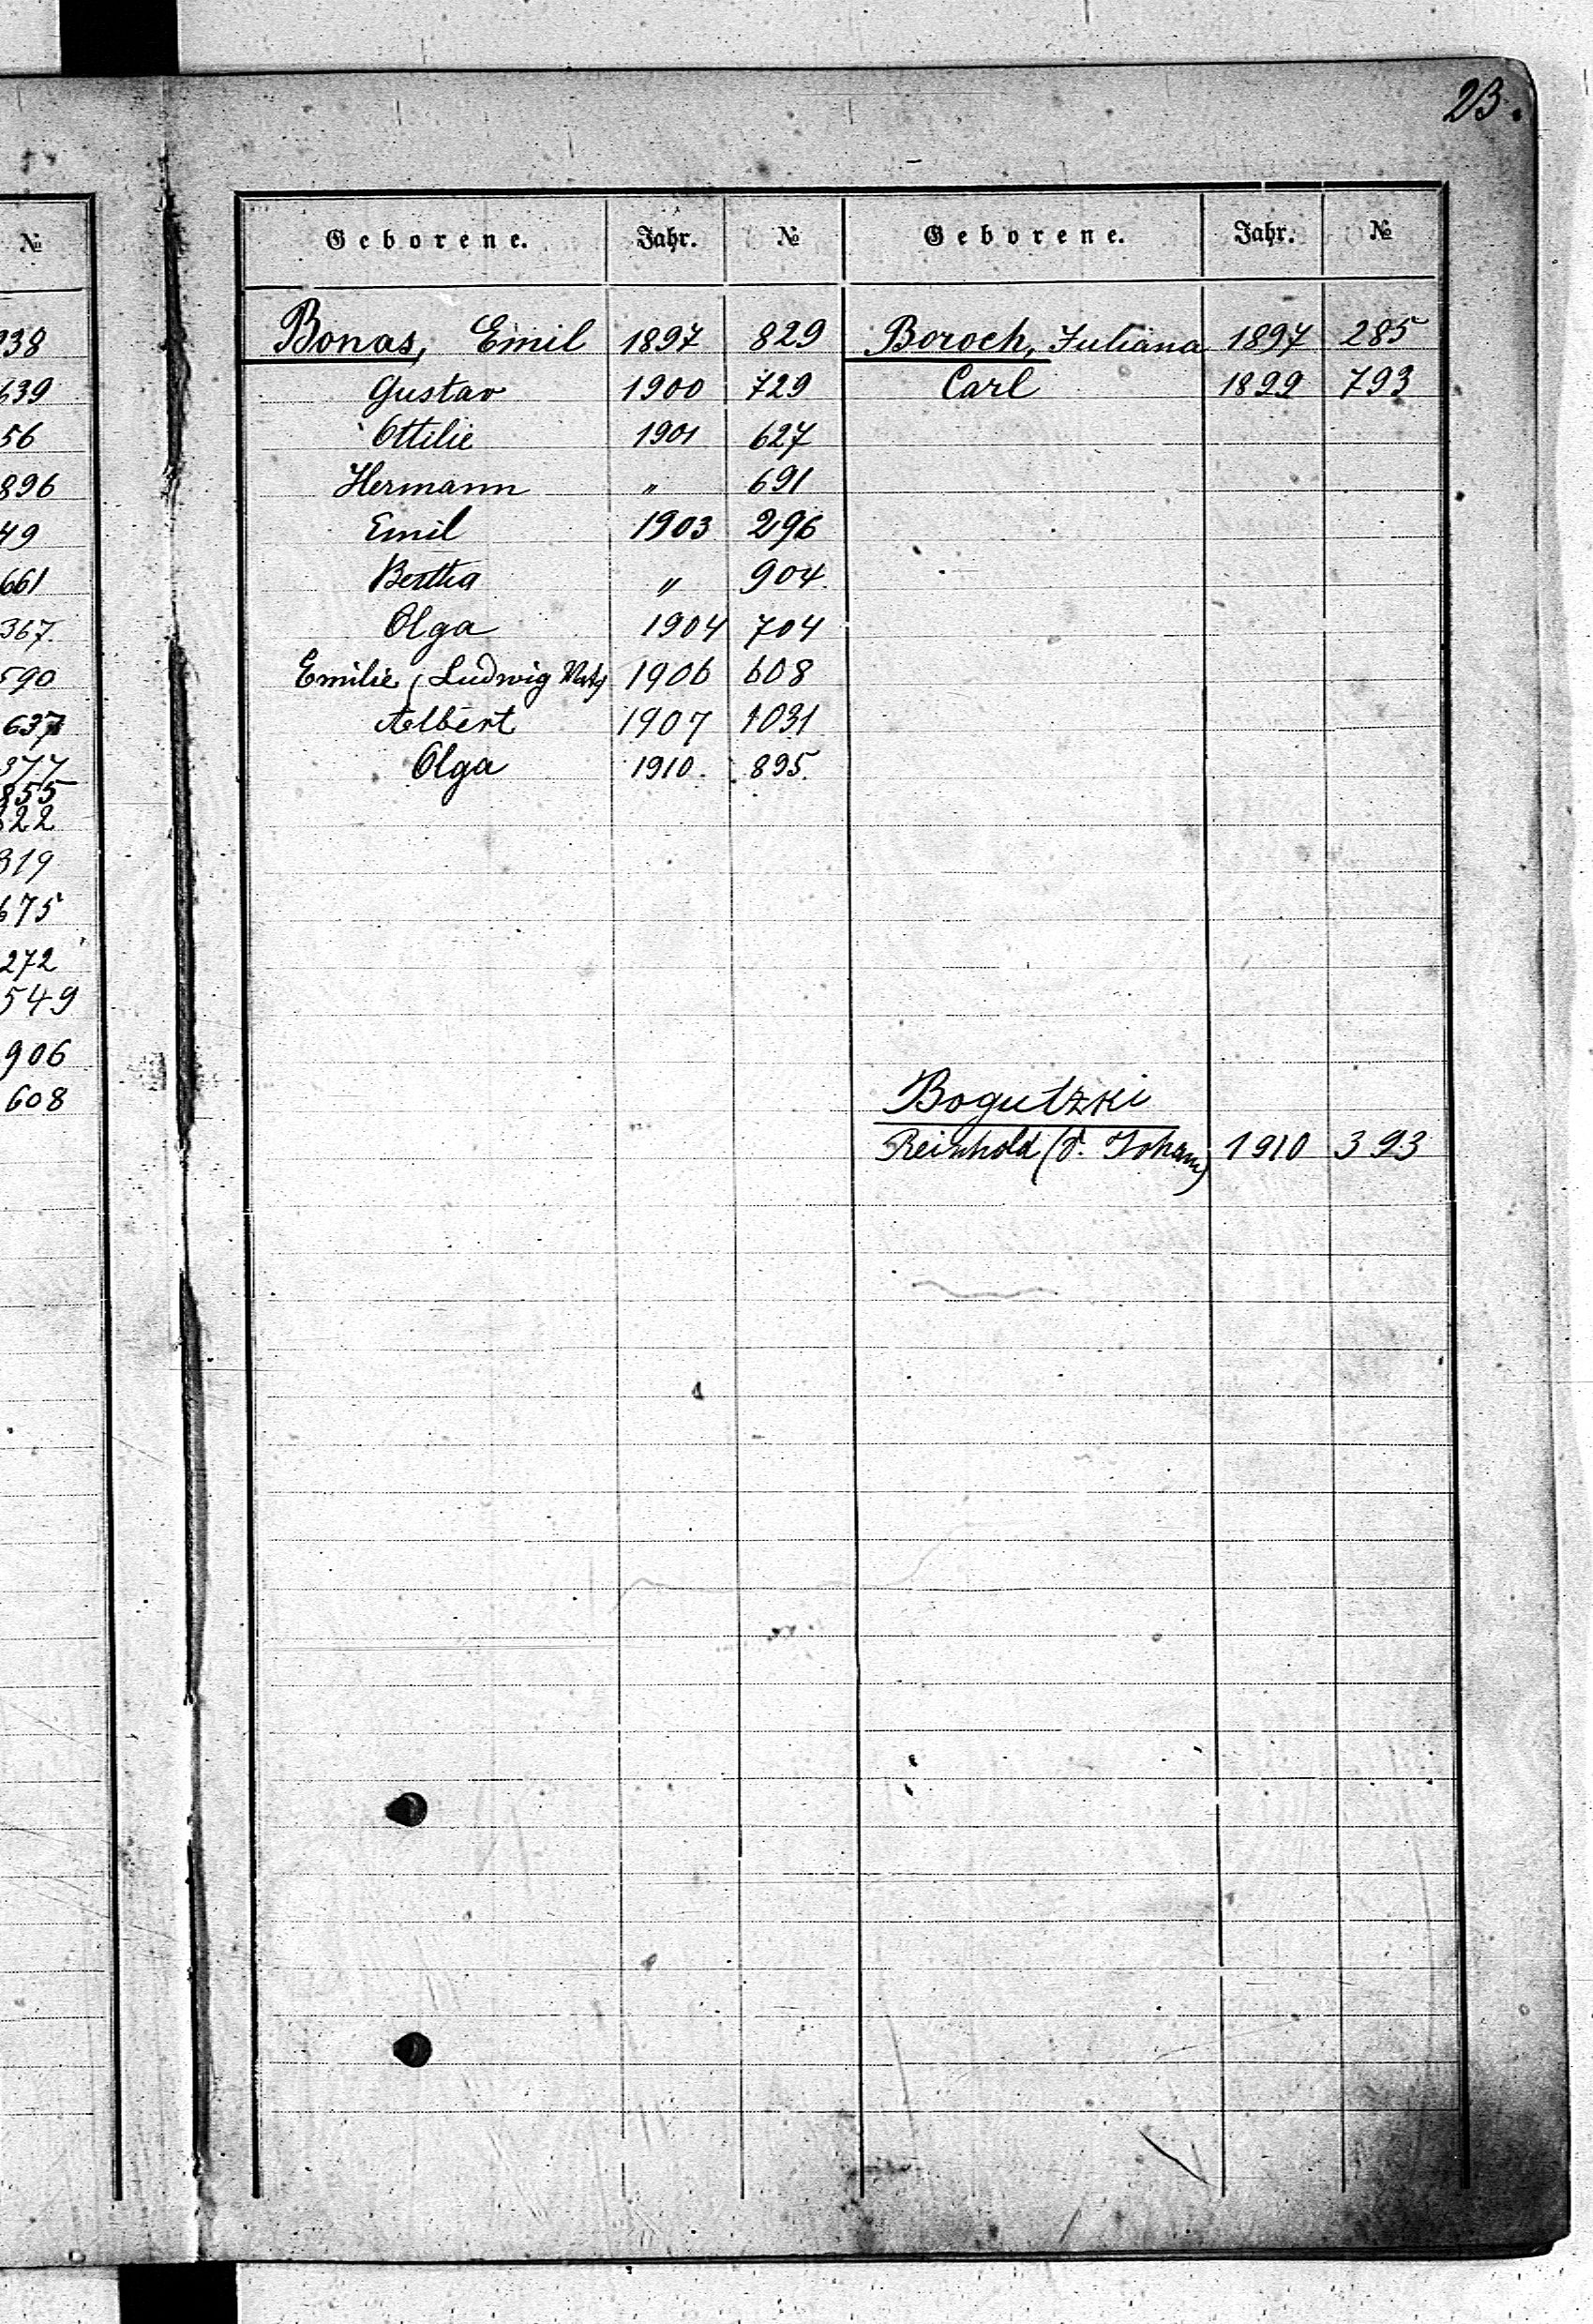 23.
№
Geborene. Jahr. № Geborene. Jahr. №
Bonas, Emil 1897 829
Gustav 1900 729
Ottilie 1901 627
Hermann " 691
Emil 1903 296
Bertha " 904.
Olga 1904 704
Emilie (Ludwig 1906 608
Albert 1907 1031
Olga 1910. 895.
Boroch, Juliana 1897 285
Carl 1899 793
Bogutzki
Reinhold (d. Johann) 1910 393
38
639
56
896
49
661
367
590
637
377
855
622
319
675
272
549
906
608